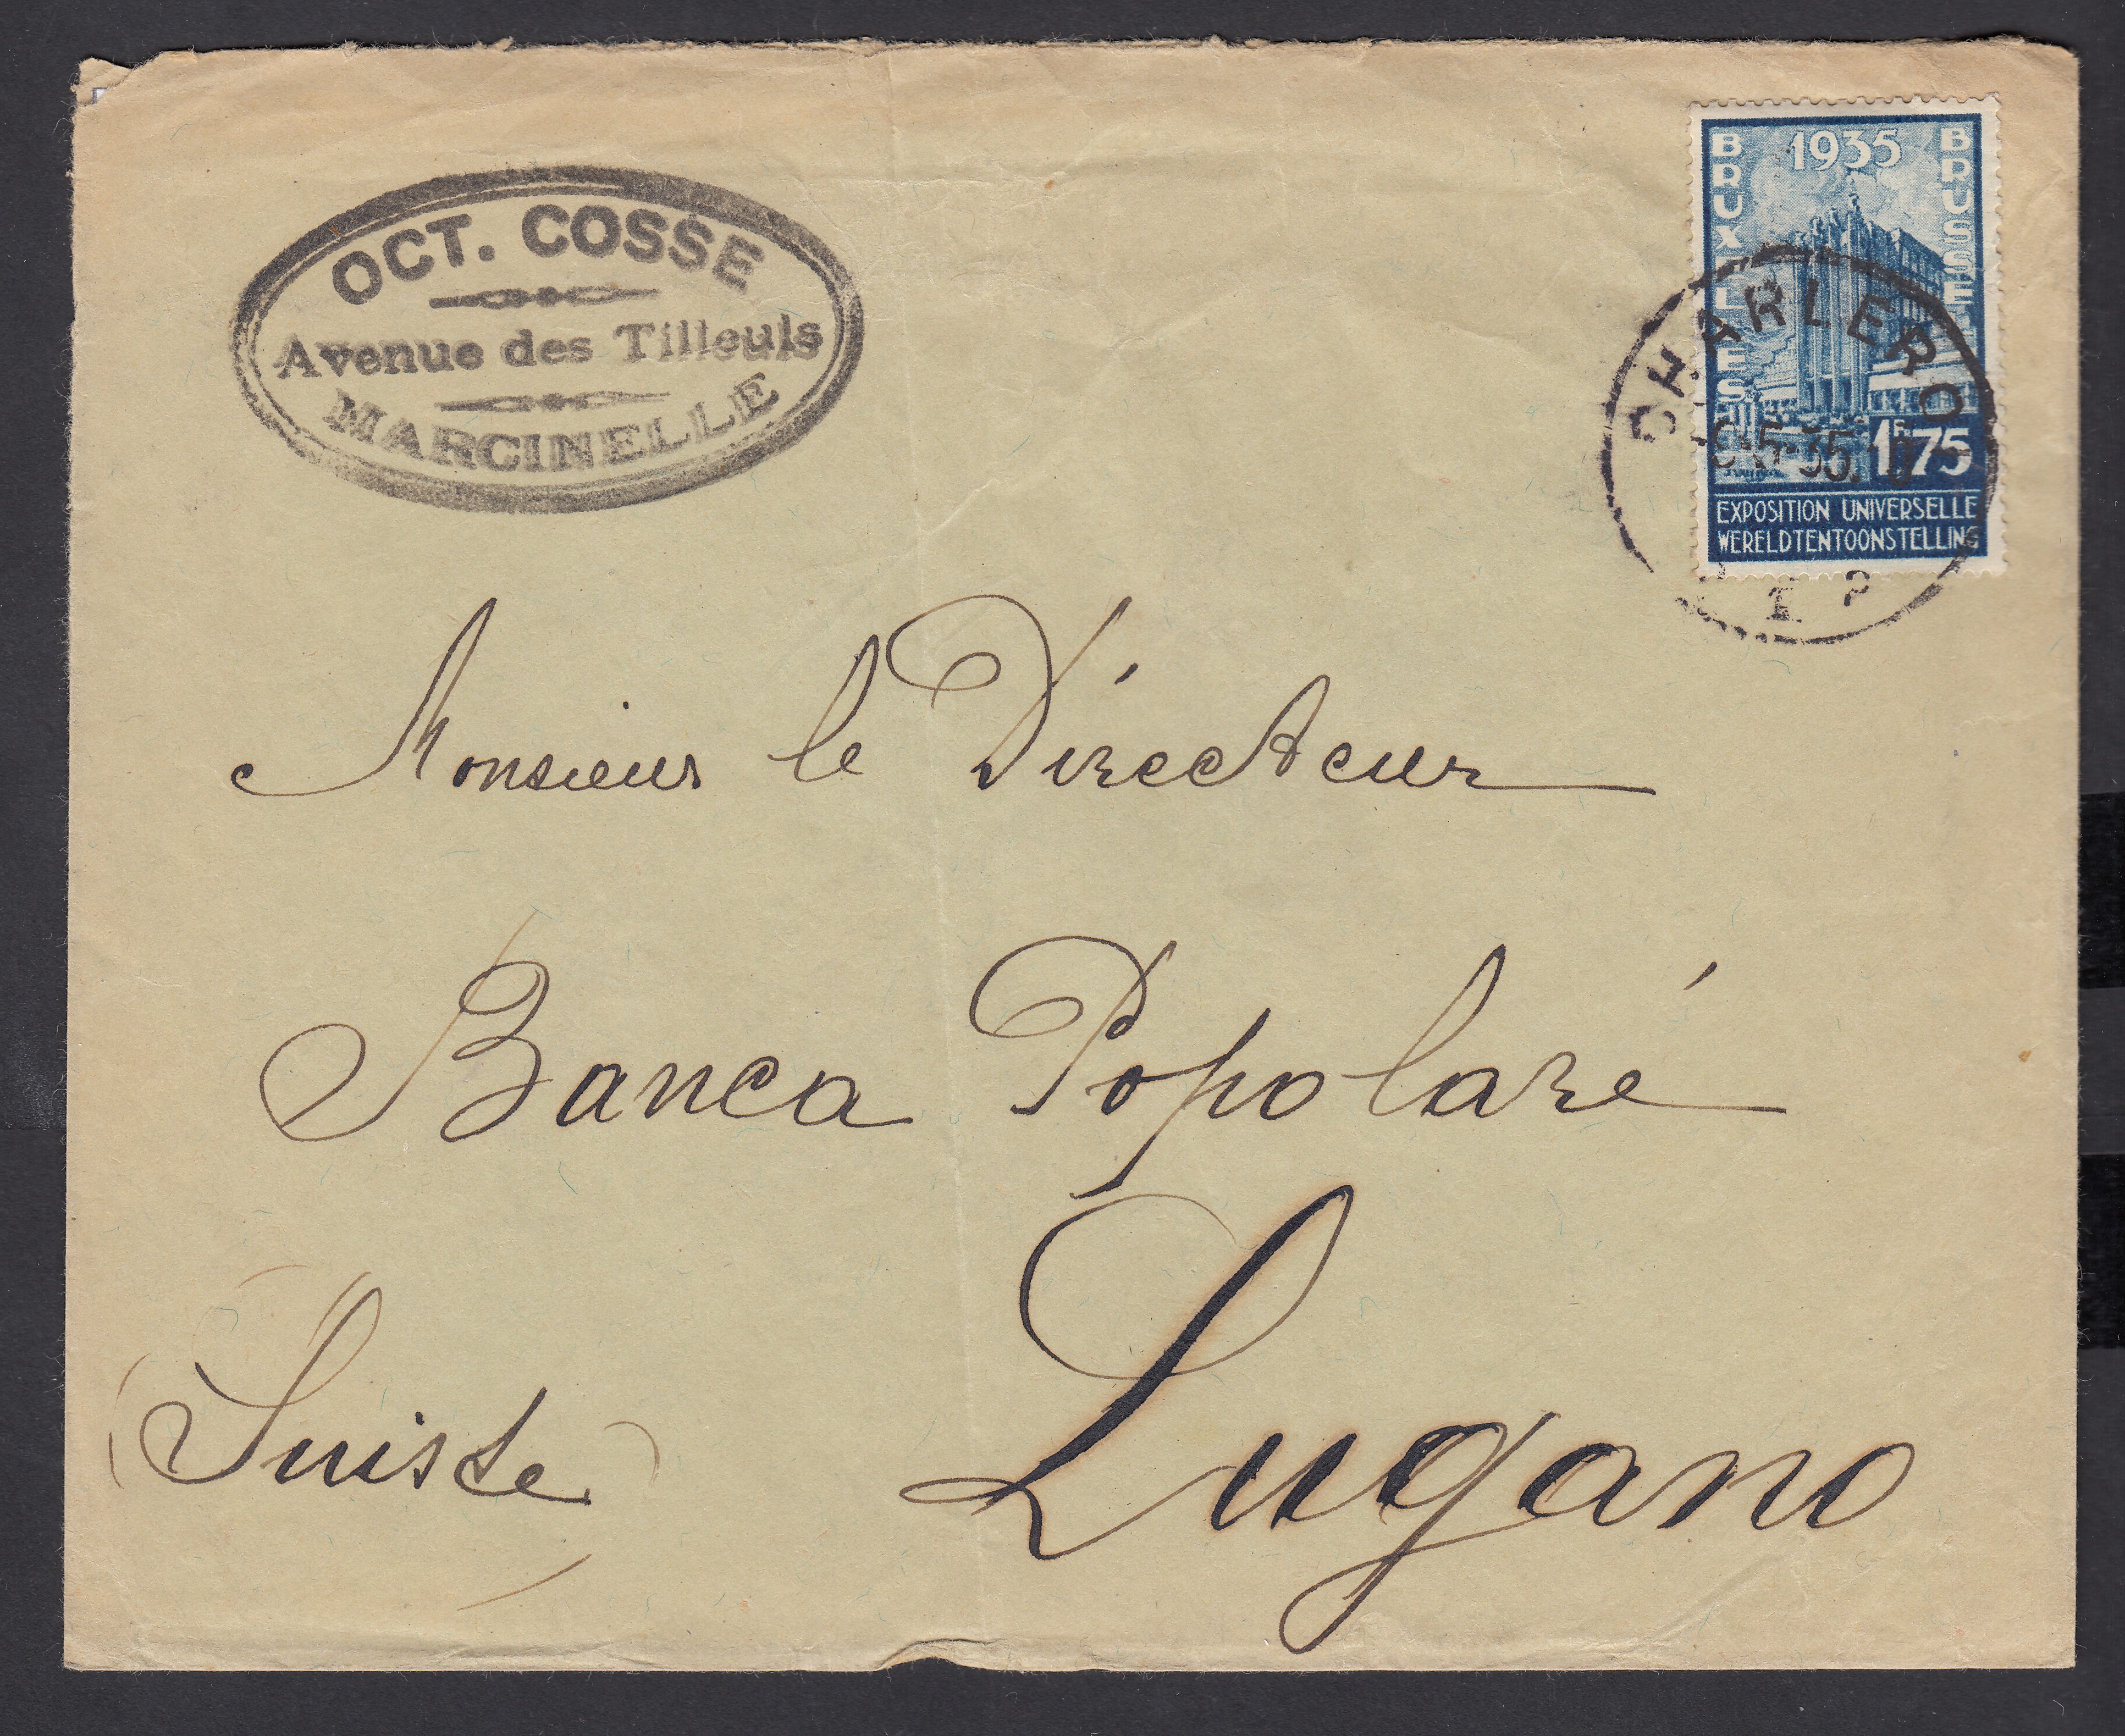 OCT. COSSE
Avenue des Tilleuls
MARCINELLE
1935
BRUXELLES
BRUSSEL
1F75
EXPOSITION UNIVERSELLE
WERELDTENTOONSTELLING
CHARLEROI
35
1
Monsieur le Directeur
Banca Popolaré
(Suisse)
Lugano